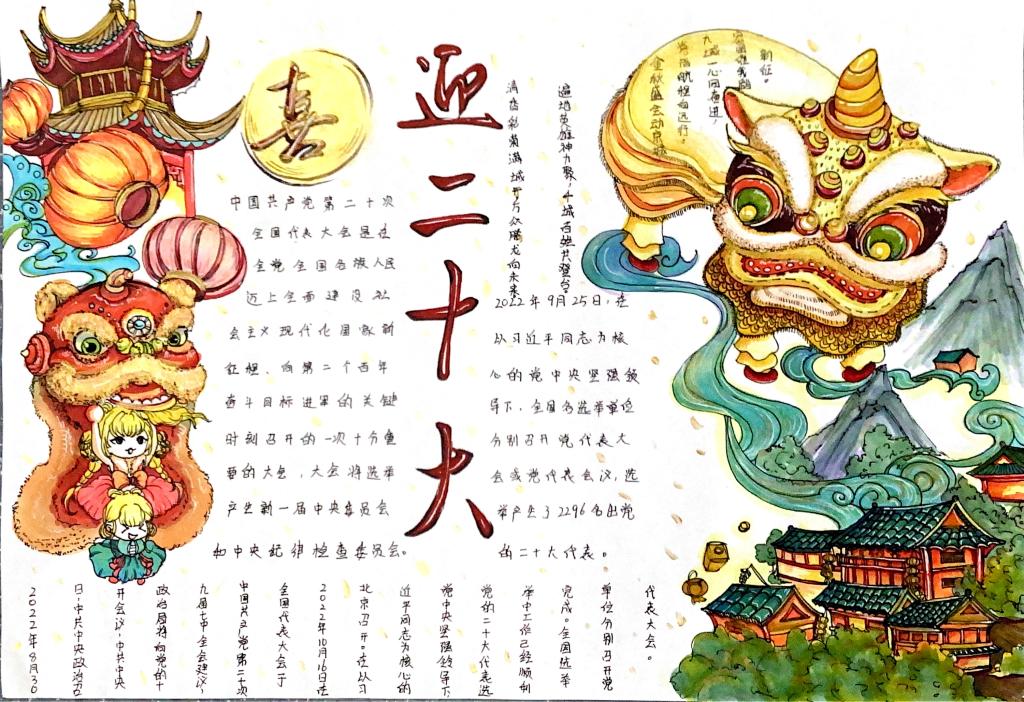 喜
迎二十大
中国共产党第二十次
全国代表大会是在
全党全国各族人民
迈上全面建设社
会主义现代化国家新
征程、向第二个百年
奋斗目标进军的关键
时刻召开的一次十分重
要的大会，大会将选举
产生新一届中央委员会
和中央纪律检查委员会。
金秋盛会动京城
航程向远行，
一心同奋进，
新征。
遍地英雄神力聚，千城百姓共登台。
满香彩菊满城开万众腾龙向未来，
2022年9月25日，在
以习近平同志为核
心的党中央坚强领
导下，全国各选举单位
分别召开党代表大
会或党代表会议，选
举产生了2296名出党
的二十大代表。
2022年8月30
日，中共中央政治召
开会议，中共中央
政治局将向党的十
九届七中全会建议，
中国共产党第二十次
全国代表大会于
2022年10月16日在
北京召开。在以习
近平同志为核心的
党中央坚强领导下
党的二十大代表选
举中工作已经顺利
完成。全国选举
单位分别召开党
代表大会。